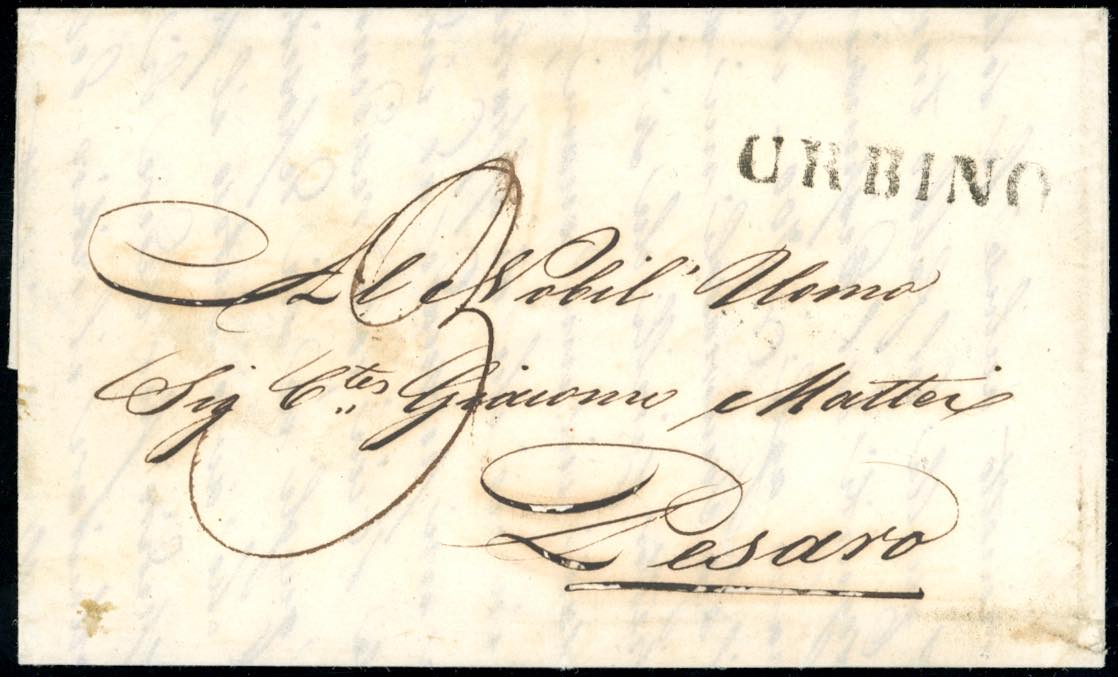 URBINO
Al Nobil' Uomo
3
Sig C.tes Giacomo Mattei
Pesaro